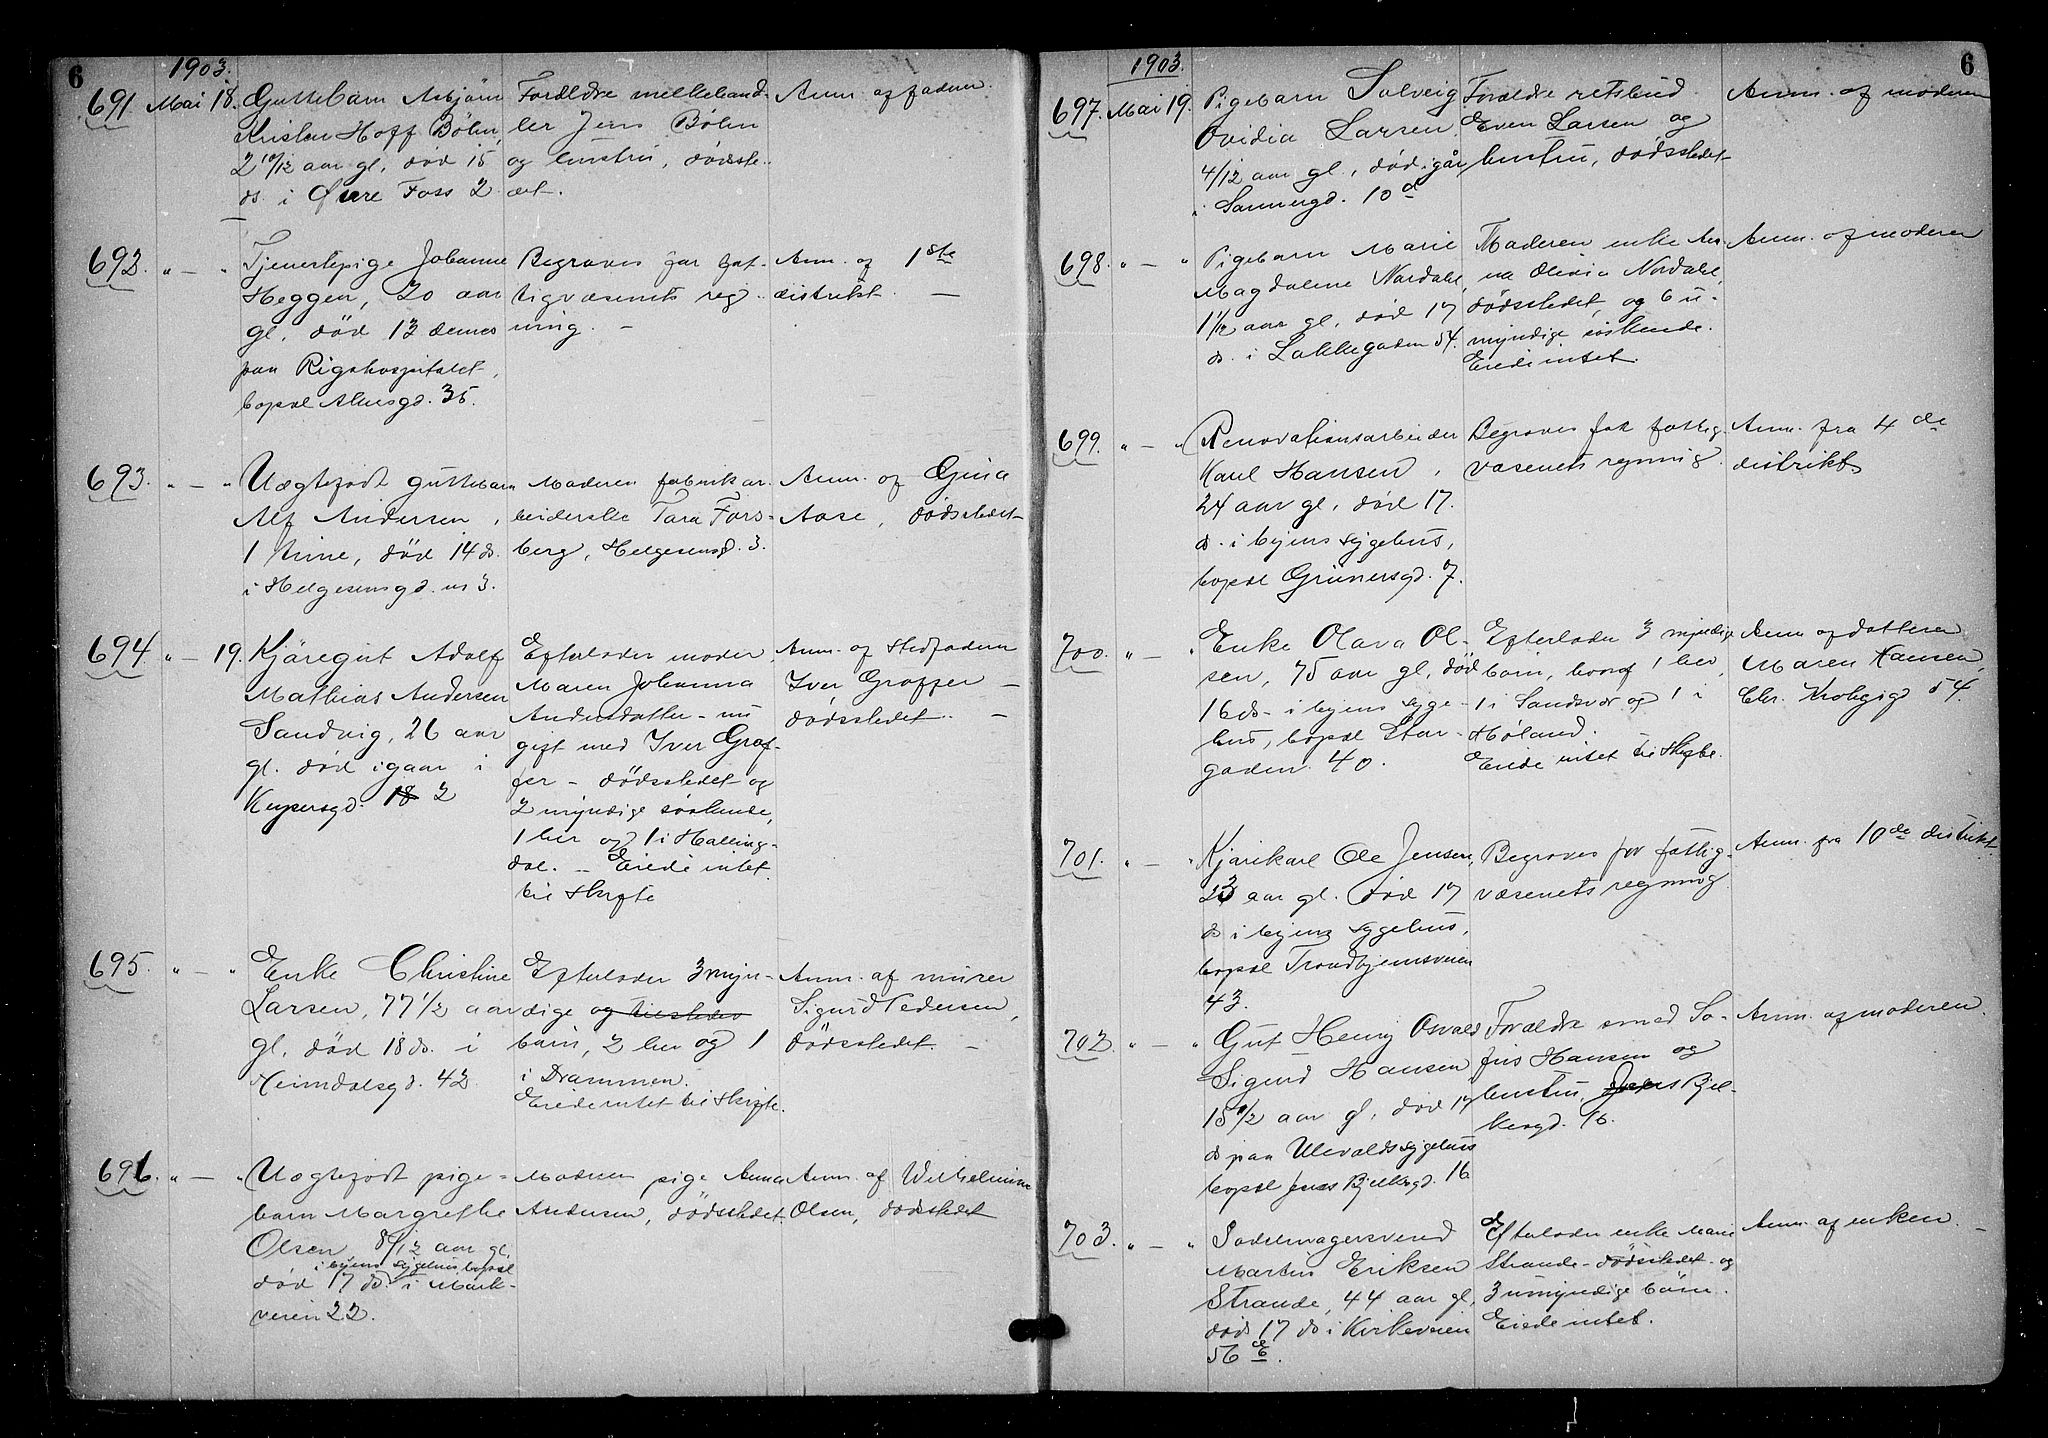 6
1903.
691 Mai 18. Guttebarn Asbjörn
Kristen Hoff Bölm,
2 10/12 aar gl, död 15
ds. i Øvre Foss 2
Forældre melkehand-
ler Jens Bölm
og hustru, dödsste-
det.
Anm. af faderen.
692. " — " Tjenestepige Johanne
Heggen, 20 aar
gl, död 13 dennes
paa Rigshospitalet,
bopæl Akersgd. 35.
Begraves for fat-
tigvæsenets reg-
ning. —
Anm. af 1ste
distrikt. —
693. " — " Uægtefödt guttebarn
Alf Andersen,
1 time, död 14 ds.
i Helgesensgd. no 3.
Moderen fabrikar-
beiderske Tara Fors-
berg, Helgesensgd. 3.
Anm. af Gina
Aase, dödsstedet
694. " — 19. Kjöregut Adolf
Mathias Andersen
Sandvig, 26 aar
gl. död igaar i
Keysersgd. 18 2
Efterlader moder
Maren Johanna
Andersdatter - nu
gift med Iver Graf-
fer - dödsstedet og
2 myndige söskende,
1 her og 1 i Halling-
dal. — Eiede intet
til Skifte
Anm. af Stedfaderen
Iver Graffer —
dödsstedet. —
695. " — " Enke Christine
Larsen, 77 1/2 aar
gl, död 18 ds. i
Heimdalsgd. 42
Efterlader 3 myn-
dige og tilsteder
börn, 2 her og 1
i Drammen.
Eiede intet til Skifte.
Anm. af murer
Sigurd Pedersen,
dödsstedet. —
696. " — " Uægtefödt pige-
barn Margrethe
Olsen, 8/12 aar gl,
i byens sygehus, bopæl
död 17 ds. i Mark-
veien 22.
Moderen pige Anna
Andersen, dödsstedet.
Anm. af Wilhelmine
Olsen, dödsstedet
6
1903.
697. Mai 19. Pigebarn Solveig
Ovidia Larsen
4/12 aar gl, död igår
i Sannergd. 10d
Forældre retsbud
Even Larsen og
hustru, dödsstedet
Anm. af moderen
698. " — " Pigebarn Marie
Magdalene Nordahl,
1 1/2 aar gl, död 17
ds. i Lakkegaden 54.
Moderen enke An-
na Olivia Nordahl,
dödsstedet, og 6 u-
myndige söskende.
Eiede intet.
Anm. af moderen
699. " — " Renovationsarbeider
Karl Hansen,
24 aar gl, död 17.
ds. i byens sygehus,
bopæl Grünersgd. 7.
Begraves for fattig-
væsenets regning.
Anm. fra 4 de
distrikt
700. " — " Enke Olava Ol-
sen, 75 aar gl, död
16 ds. i byens syge-
hus, bopæl Stor-
gaden 40.
Efterlader 3 myndige
börn, hvoraf 1 her,
1 i Sandsvær og 1 i
Höland.
Eiede intet til Skifte.
Anm af datteren
Maren Hansen,
Chr. Krohgsgd 54.
701. " — " Kjörekarl Ole Jensen,
23 aar gl. död 17
ds i byens sygehus,
bopæl Trondhjemsveien
43.
Begraves for fattig-
væsenets regning
Anm. fra 10de distrikt.
702. " — " Gut Henry Osvald
Sigurd Hansen
15 1/2 aar gl, död 17
ds paa Ullevaalds sygehus
bopæl Jens Bjelkesgd. 16
Forældre smed So-
fus Hansen og
hustru, Jens Bjel-
kesgd. 16.
Anm. af moderen.
703. " — " Sadelmagersvend
Martin Eriksen
Strande, 44 aar gl,
död 17 ds i Kirkeveien
56 E.
Efterlader enke Marie
Strande - dödsstedet - og
3 umyndige börn.
Eiede intet.
Anm. af enken. —